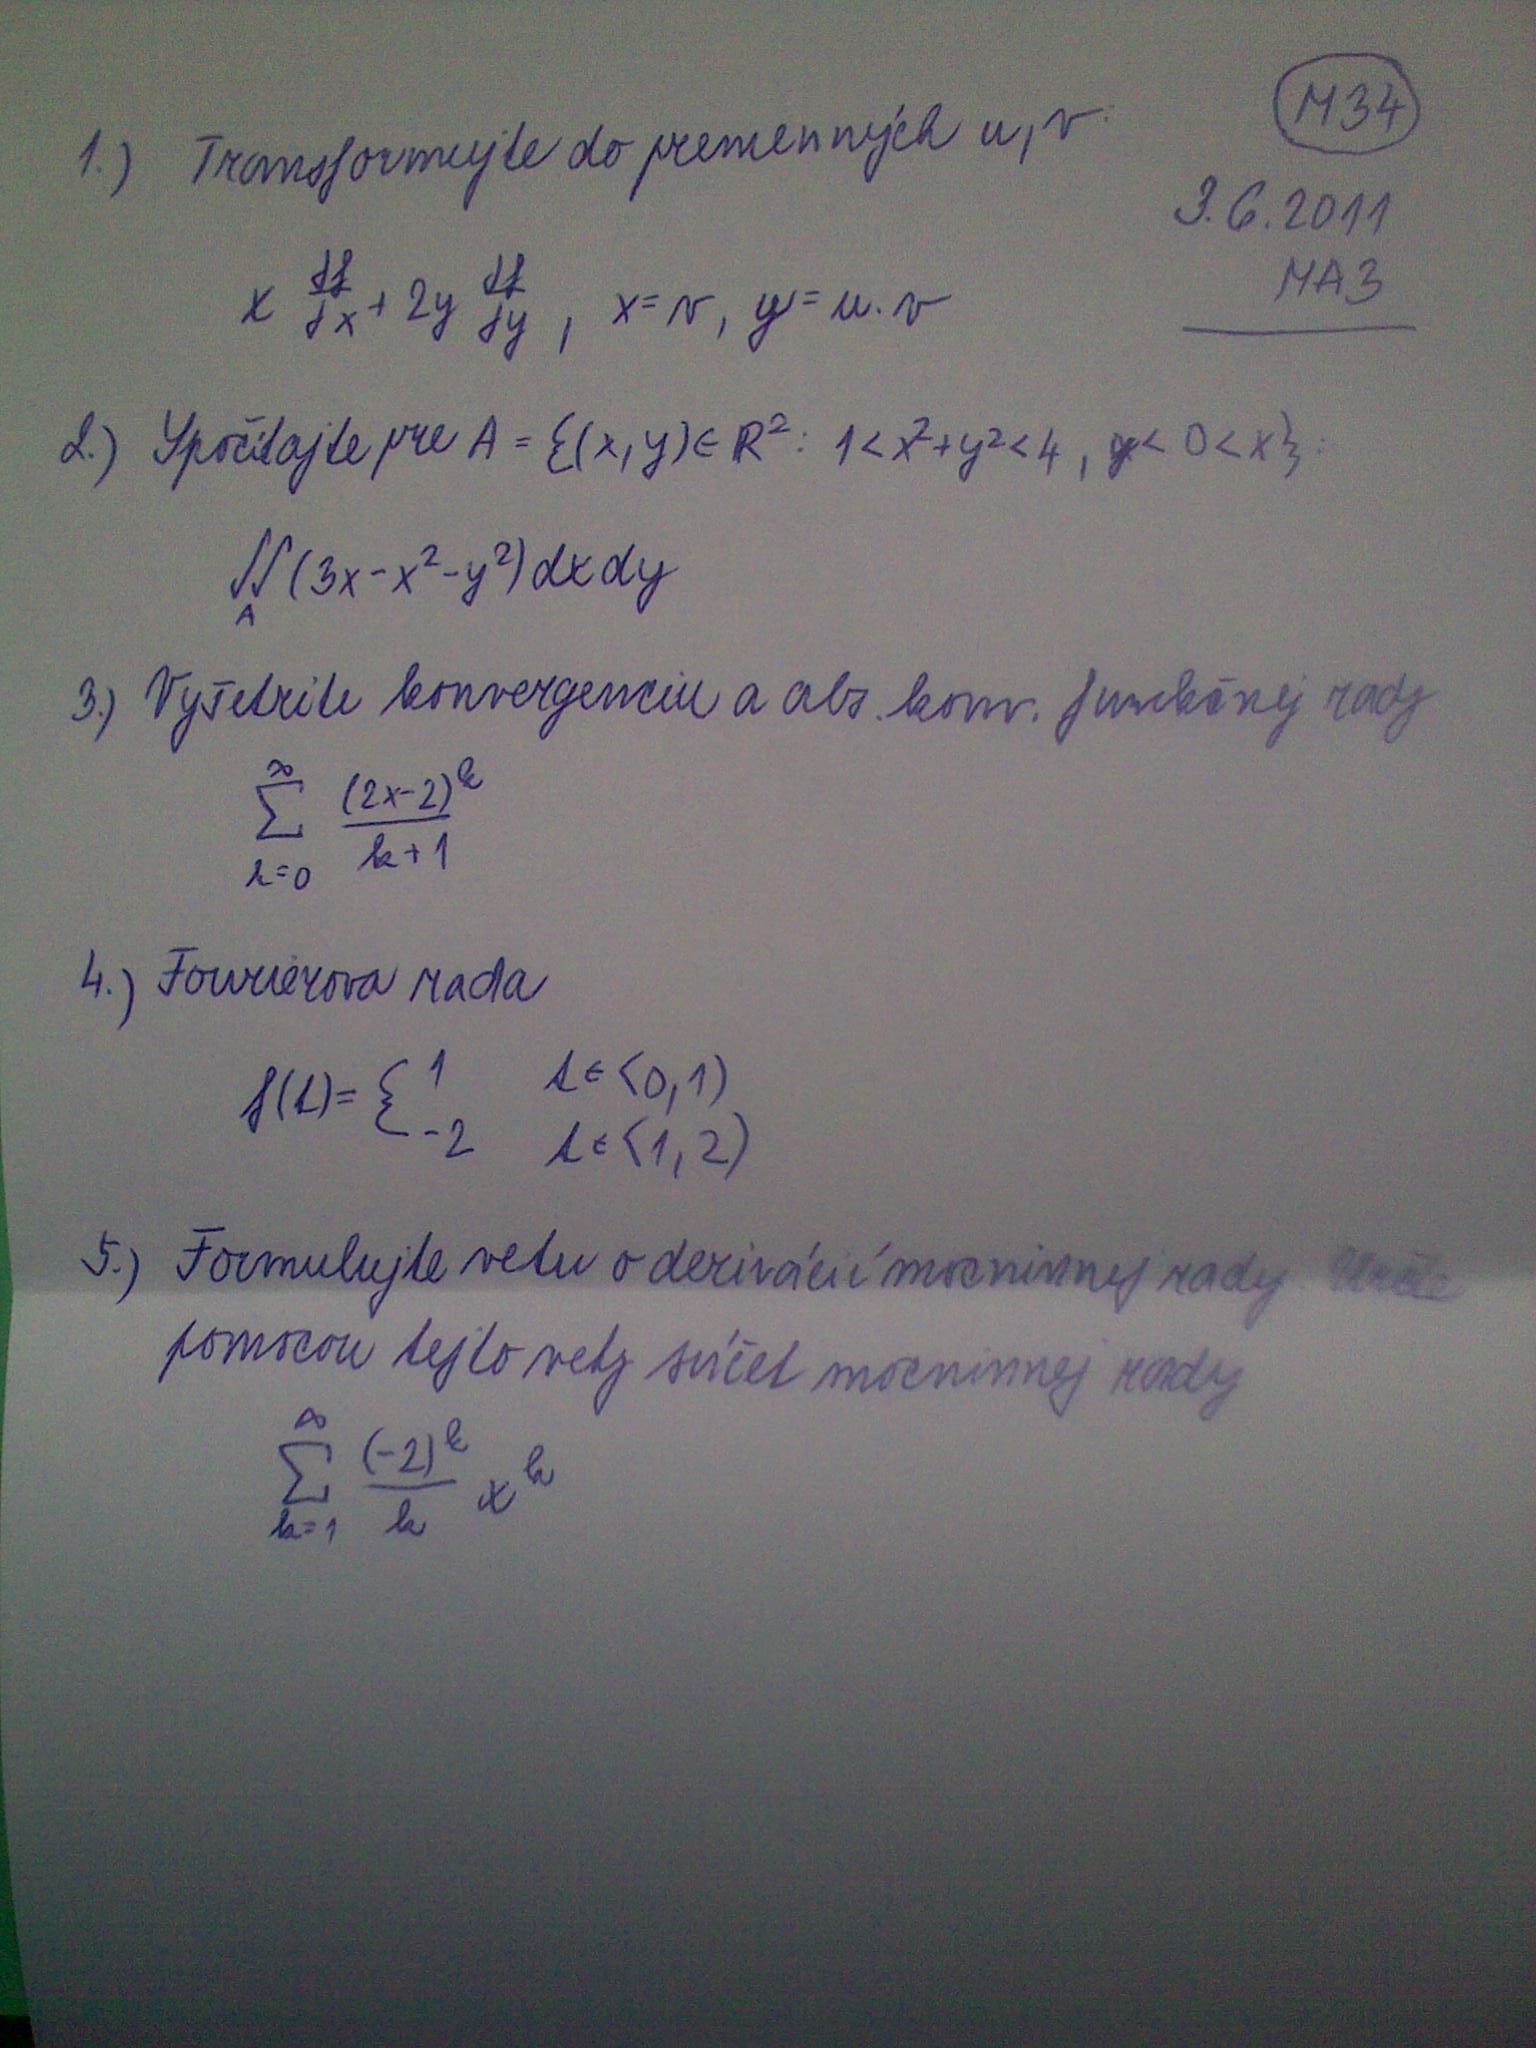 M34
1.) Transformujte do premenných u, v.
3.6.2011
MA3
x ∂f/∂x + 2y ∂f/∂y , x=v, y=u.v
2.) Spočítajte pre A = {(x,y)∈R²: 1<x²+y²<4, y<0<x}:
∬_A (3x-x²-y²)dxdy
3.) Vyšetrite konvergenciu a abs. konv. funkčnej rady
∑_{k=0}^{∞} (2x-2)^k / (k+1)
4.) Fourierova rada
f(t)= { 1 t∈<0,1)
-2 t∈<1,2)
5.) Formulujte vetu o derivácií mocninnej rady. Určte
pomocou tejto vety súčet mocninnej rady
∑_{k=1}^{∞} (-2)^k / k x^k